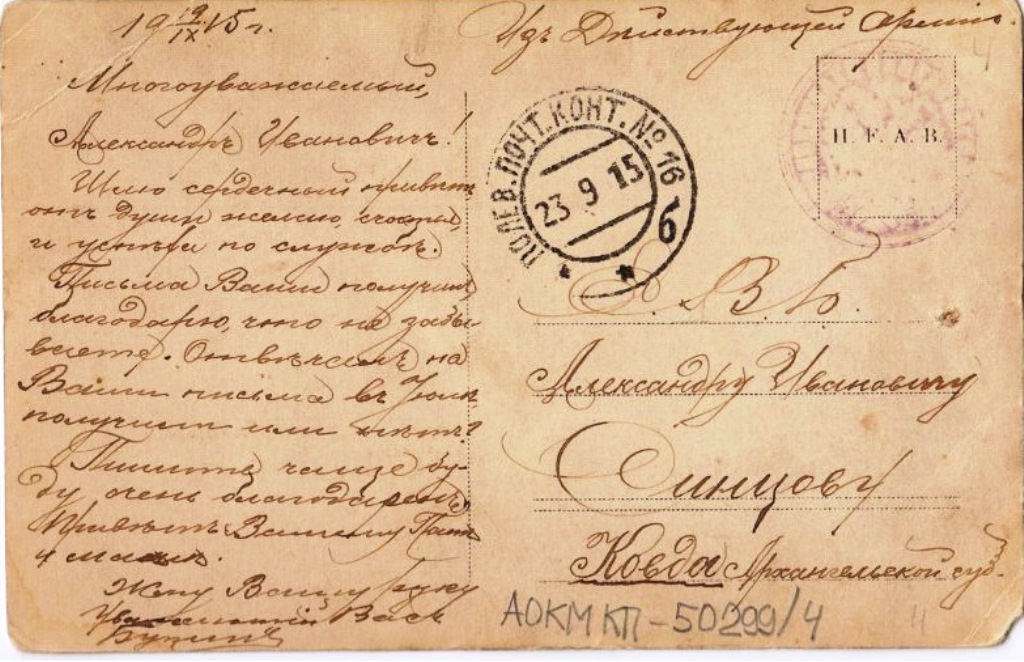 19 19/IX 15 г.
Многоуважаемый,
Александръ Ивановичъ!
Шлю сердечный привѣтъ
отъ души желаю, счастья,
и успѣха по службѣ.
Письма Ваши получилъ,
благодарю, что не забы-
ваете. Отвѣчалъ на
Ваши письма въ Іюлѣ
получили или нѣтъ?
Пишите чаще бу-
ду очень благодаренъ.
Привѣтъ Вашему
и
Жму Вашу руку
Уважающій Васъ
Изъ Дѣйствующей Арміи.
ПОЛЕВ. ПОЧТ. КОНТ. № 16
23 9 15
б
H. F. A. B.
Е. В. Б.
Александру Ивановичу
Синцову
Ковда Архангельской губ.
АОКМ КП-50299/4
4
4